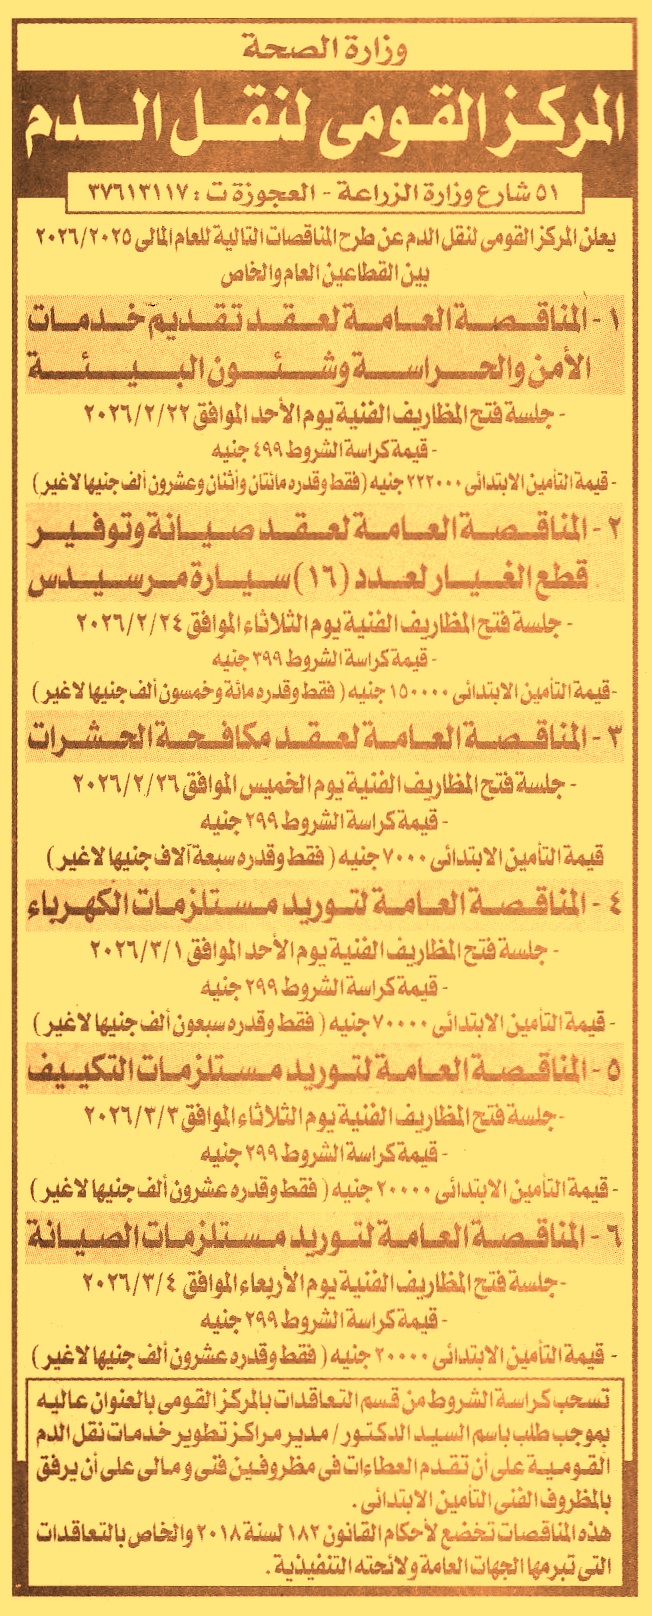 وزارة الصحة
المركز القومى لنقل الدم
٥١ شارع وزارة الزراعة - العجوزة ت : ٣٧٦١٣١١٧
يعلن المركز القومى لنقل الدم عن طرح المناقصات التالية للعام المالى ٢٠٢٦/٢٠٢٥
بين القطاعين العام والخاص
١ - المناقصة العامة لعقد تقديم خدمات
الأمن والحراسة وشئون البيئة
- جلسة فتح المظاريف الفنية يوم الأحد الموافق ٢٠٢٦/٢/٢٢
- قيمة كراسة الشروط ٤٩٩ جنيه
- قيمة التأمين الابتدائى ٢٢٢٠٠٠ جنيه (فقط وقدره مائتان وأثنان وعشرون ألف جنيها لاغير)
٢ - المناقصة العامة لعقد صيانة وتوفير
قطع الغيار لعدد (١٦) سيارة مرسيدس
- جلسة فتح المظاريف الفنية يوم الثلاثاء الموافق ٢٠٢٦/٢/٢٤
- قيمة كراسة الشروط ٣٩٩ جنيه
-قيمة التأمين الابتدائى ١٥٠٠٠٠ جنيه ( فقط وقدره مائة وخمسون ألف جنيها لاغير)
٣ - المناقصة العامة لعقد مكافحة الحشرات
- جلسة فتح المظاريف الفنية يوم الخميس الموافق ٢٠٢٦/٢/٢٦
- قيمة كراسة الشروط ٢٩٩ جنيه
قيمة التأمين الابتدائى ٧٠٠٠ جنيه ( فقط وقدره سبعة آلاف جنيها لاغير)
٤ - المناقصة العامة لتوريد مستلزمات الكهرباء
- جلسة فتح المظاريف الفنية يوم الأحد الموافق ٢٠٢٦/٣/١
- قيمة كراسة الشروط ٢٩٩ جنيه
- قيمة التأمين الابتدائى ٧٠٠٠٠ جنيه ( فقط وقدره سبعون ألف جنيها لاغير)
٥ - المناقصة العامة لتوريد مستلزمات التكييف
-جلسة فتح المظاريف الفنية يوم الثلاثاء الموافق ٢٠٢٦/٣/٣
- قيمة كراسة الشروط ٢٩٩ جنيه
- قيمة التأمين الابتدائى ٢٠٠٠٠ جنيه ( فقط وقدره عشرون ألف جنيها لاغير)
٦ - المناقصة العامة لتوريد مستلزمات الصيانة
-جلسة فتح المظاريف الفنية يوم الأربعاء الموافق ٢٠٢٦/٣/٤
- قيمة كراسة الشروط ٢٩٩ جنيه
- قيمة التأمين الابتدائى ٢٠٠٠٠ جنيه ( فقط وقدره عشرون ألف جنيها لاغير)
تسحب كراسة الشروط من قسم التعاقدات بالمركز القومى بالعنوان عاليه
بموجب طلب باسم السيد الدكتور/ مدير مراكز تطوير خدمات نقل الدم
القومية على أن تقدم العطاءات فى مظروفين فنى و مالى على أن يرفق
بالمظروف الفنى التأمين الابتدائى .
هذه المناقصات تخضع لأحكام القانون ١٨٢ لسنة ٢٠١٨ والخاص بالتعاقدات
التى تبرمها الجهات العامة ولائحته التنفيذية .